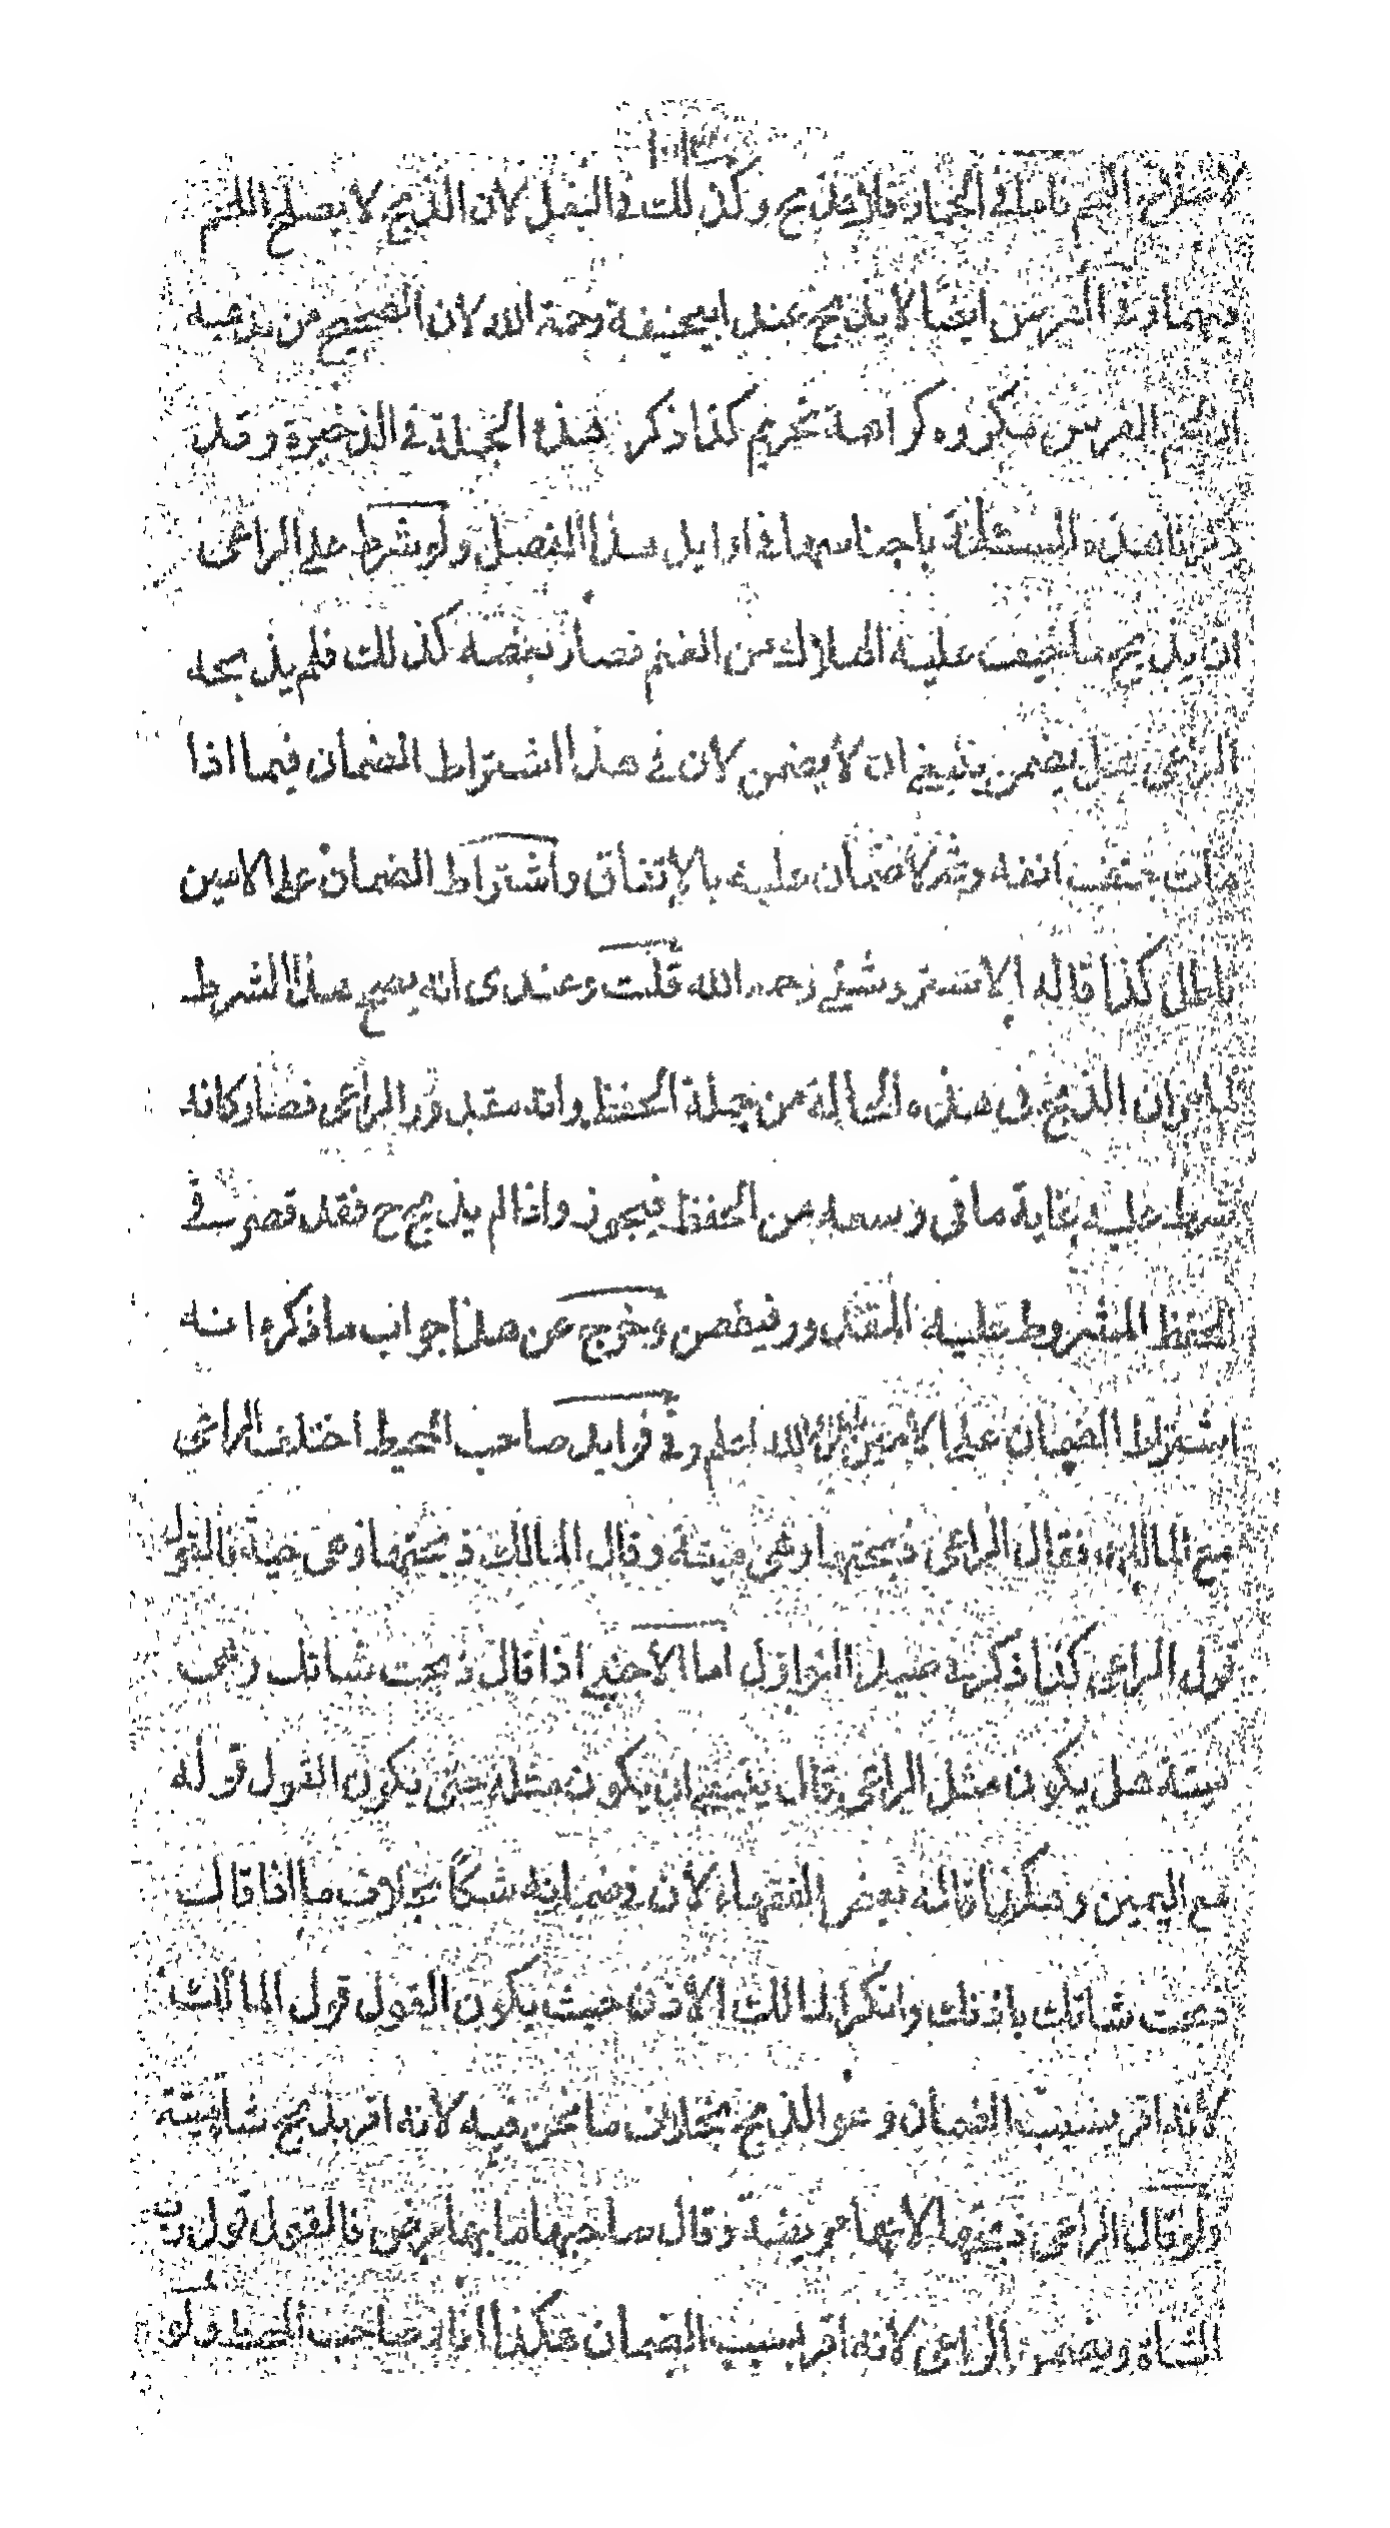 لاصلاح اللحم فاما في الحمار فلا يذبح وكذلك في البغل لان الذبح لا يصلح اللحم
فيهما وفي الفرس ايضا لا يذبح عند ابيحنيفة رحمة الله لان الصحيح من مذهبه
ان لحم الفرس مكروه كراهة تحريم كذا ذكر هذه الجملة في الذخيرة وقد
ذكرنا هذه المسئلة باجناسها في اوايل هذا الفصل ولو شرط على الراعى
ان يذبح ما خيف عليه الهلاك من الغنم فصار بعضه كذلك فلم يذبحه
الراعى هل يضمن ينبغي ان لا يضمن لان في هذا اشتراط الضمان فيما اذا
مات حتف انفه وثم لا ضمان عليه بالاتفاق واشتراط الضمان على الامين
باطل كذا قاله الاستروشني رحمه الله قلت وعندى انه يصح هذا الشرط
لما مر ان الذبح في هذه الحالة من جملة الحفظ وانه مقدور الراعى فصار كانه
شرط عليه بغاية ما في وسعه من الحفظ فيجوز واذا لم يذبح ح فقد قصر في
الحفظ المشروط عليه المقدور فيضمن وخرج عن هذا جواب ما ذكره انه
اشتراط الضمان على الامين والله اعلم وفي فوايد صاحب المحيط اختلف الراعى
مع المالك فقال الراعى ذبحتها وهي ميتة وقال المالك ذبحتها وهى حية فالقول
قول الراعى كذا ذكر في النوازل اما الاجنبي اذا قال ذبحت شاتك وهى
ميتة هل يكون مثل الراعى قال ينبغي ان يكون مثله حتى يكون القول قوله
مع اليمين وهكذا قاله بعض الفقهاء لان في ضمانه شكا بخلاف ما اذا قال
ذبحت شاتك باذنك وانكر المالك الاذن حيث يكون القول قول المالك
لانه اقر بسبب الضمان وهو الذبح بخلاف ما نحن فيه لانه اقر بذبح شاة ميتة
ولو قال الراعى ذبحتها لانها مريضة وقال صاحبها ما بها مرض فالقول قول رب
الشاة ويضمن الراعى لانه اقر بسبب الضمان هكذا افاد صاحب المحيط ولو